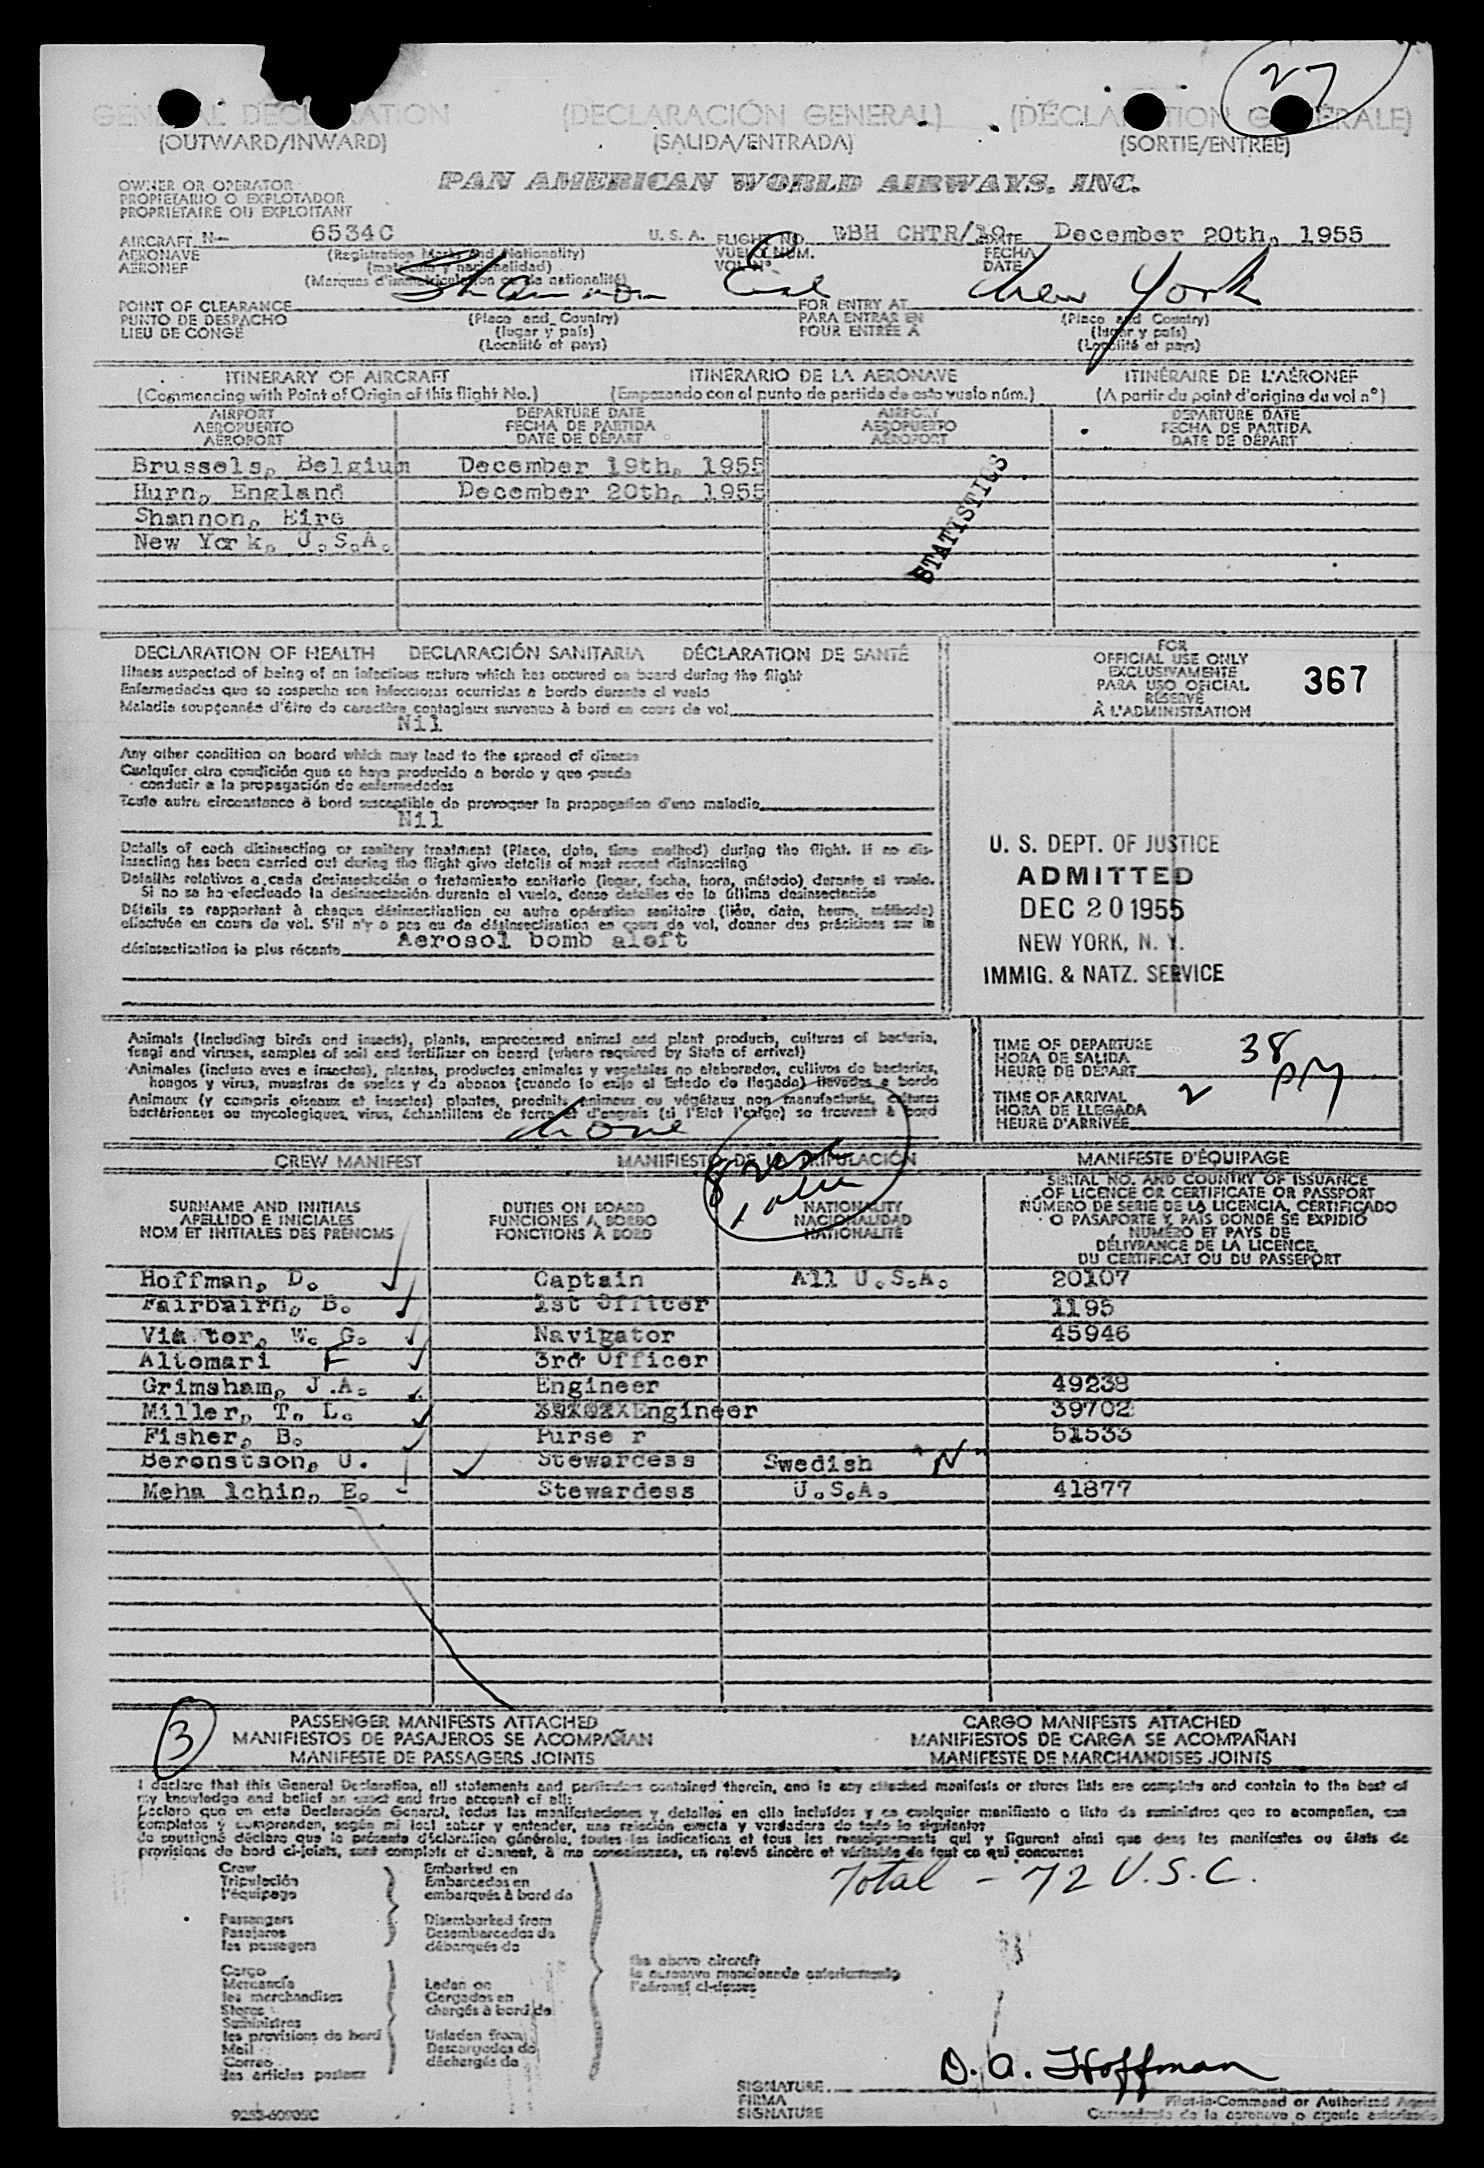 27
GENERAL DECLARATION (DECLARACIÓN GENERAL) (DÉCLARATION GÉNÉRALE)
(OUTWARD/INWARD) (SALIDA/ENTRADA) (SORTIE/ENTRÉE)
OWNER OR OPERATOR
PROPIETARIO O EXPLOTADOR
PROPRIÉTAIRE OU EXPLOITANT
PAN AMERICAN WORLD AIRWAYS, INC.
AIRCRAFT N- 6534C U.S.A. FLIGHT NO. WBH CHTR/19 DATE December 20th, 1955
AERONAVE (Registration Marks and Nationality) VUELO NUM. FECHA
AÉRONEF (matrícula y nacionalidad) VOL Nº DATE
(Marques d'immatriculation ou de nationalité)
POINT OF CLEARANCE Shannon Eire FOR ENTRY AT New York
PUNTO DE DESPACHO (Place and Country) PARA ENTRAR EN (Place and Country)
LIEU DE CONGÉ (lugar y país) POUR ENTRÉE À (lugar y país)
(Localité et pays) (Localité et pays)
ITINERARY OF AIRCRAFT ITINERARIO DE LA AERONAVE ITINÉRAIRE DE L'AÉRONEF
(Commencing with Point of Origin of this flight No.) (Empezando con el punto de partida de este vuelo núm.) (A partir du point d'origine du vol nº)
AIRPORT DEPARTURE DATE AIRPORT DEPARTURE DATE
AEROPUERTO FECHA DE PARTIDA AEROPUERTO FECHA DE PARTIDA
AÉROPORT DATE DE DÉPART AÉROPORT DATE DE DÉPART
Brussels, Belgium December 19th, 1955
Hurn, England December 20th, 1955
Shannon, Eire
New York, U.S.A.
STATISTICS
DECLARATION OF HEALTH DECLARACIÓN SANITARIA DÉCLARATION DE SANTÉ
Illness suspected of being of an infectious nature which has occured on board during the flight
Enfermedades que se sospecha son infecciosas ocurridas a bordo durante el vuelo
Maladie soupçonnée d'être de caractère contagieux survenue à bord en cours de vol
Nil
Any other condition on board which may lead to the spread of disease
Cualquier otra condición que se haya producido a bordo y que pueda
conducir a la propagación de enfermedades
Toute autre circonstance à bord susceptible de provoquer la propagation d'une maladie
Nil
Details of each disinsecting or sanitary treatment (Place, date, time method) during the flight. If no dis-
insecting has been carried out during the flight give details of most recent disinsecting
Detalles relativos a cada desinsectación o tratamiento sanitario (lugar, fecha, hora, método) durante el vuelo.
Si no se ha efectuado la desinsectación durante el vuelo, dense detalles de la última desinsectación
Détails se rapportant à chaque désinsectisation ou autre opération sanitaire (lieu, date, heure, méthode)
effectuée en cours de vol. S'il n'y a pas eu de désinsectisation en cours de vol, donner des précisions sur la
désinsectisation la plus récente Aerosol bomb aloft
FOR
OFFICIAL USE ONLY
EXCLUSIVAMENTE
PARA USO OFICIAL
RÉSERVÉ
À L'ADMINISTRATION
367
U. S. DEPT. OF JUSTICE
ADMITTED
DEC 20 1955
NEW YORK, N. Y.
IMMIG. & NATZ. SERVICE
Animals (including birds and insects), plants, unprocessed animal and plant products, cultures of bacteria,
fungi and viruses, samples of soil and fertilizer on board (where required by State of arrival)
Animales (incluso aves e insectos), plantas, productos animales y vegetales no elaborados, cultivos de bacterias,
hongos y virus, muestras de suelos y de abonos (cuando lo exija el Estado de llegada) llevados a bordo
Animaux (y compris oiseaux et insectes) plantes, produits animaux ou végétaux non manufacturés, cultures
bactériennes ou mycologiques, virus, échantillons de terre et d'engrais (si l'État l'exige) se trouvant à bord
None
TIME OF DEPARTURE
HORA DE SALIDA
HEURE DE DÉPART
TIME OF ARRIVAL
HORA DE LLEGADA
HEURE D'ARRIVÉE
2 38 PM
CREW MANIFEST MANIFIESTO DE LA TRIPULACIÓN MANIFESTE D'ÉQUIPAGE
8 usc
1 alien
SURNAME AND INITIALS DUTIES ON BOARD NATIONALITY
APELLIDO E INICIALES FUNCIONES A BORDO NACIONALIDAD
NOM ET INITIALES DES PRÉNOMS FONCTIONS À BORD NATIONALITÉ
SERIAL NO. AND COUNTRY OF ISSUANCE
OF LICENCE OR CERTIFICATE OR PASSPORT
NÚMERO DE SERIE DE LA LICENCIA, CERTIFICADO
O PASAPORTE Y PAÍS DONDE SE EXPIDIÓ
NUMÉRO ET PAYS DE
DÉLIVRANCE DE LA LICENCE,
DU CERTIFICAT OU DU PASSEPORT
Hoffman, D. Captain All U.S.A. 20107
Fairbairn, B. 1st Officer 1195
Viator, W. G. Navigator 45946
Altomari F 3rd Officer
Grimsham, J.A. Engineer 49238
Miller, T. L. Engineer 39702
Fisher, B. Purser 51533
Beronstson, U. Stewardess Swedish "N"
Mehalchin, E. Stewardess U.S.A. 41877
3
PASSENGER MANIFESTS ATTACHED CARGO MANIFESTS ATTACHED
MANIFIESTOS DE PASAJEROS SE ACOMPAÑAN MANIFIESTOS DE CARGA SE ACOMPAÑAN
MANIFESTE DE PASSAGERS JOINTS MANIFESTE DE MARCHANDISES JOINTS
I declare that this General Declaration, all statements and particulars contained therein, and in any attached manifests or stores lists are complete and contain to the best of
my knowledge and belief an exact and true account of all:
Declaro que en esta Declaración General, todas las manifestaciones y detalles en ella incluídos y en cualquier manifiesto o lista de suministros que se acompañen, son
completos y comprenden, según mi leal saber y entender, una relación exacta y verdadera de todo lo siguiente:
Je soussigné déclare que la présente déclaration générale, toutes les indications et tous les renseignements qui y figurent ainsi que dans les manifestes ou états de
provisions de bord ci-joints, sont complets et donnent, à ma connaissance, un relevé sincère et véritable de tout ce qui concerne:
Total - 72 U.S.C.
Crew Embarked on
Tripulación Embarcados en
l'équipage embarqués à bord de
Passengers Disembarked from
Pasajeros Desembarcados de
les passagers débarqués de
the above aircraft
la aeronave mencionada anteriormente
l'aéronef ci-dessus
Cargo
Mercancía Laden on
les marchandises Cargados en
Stores chargés à bord de
Suministros
les provisions de bord Unladen from
Mail Descargados de
Correo déchargés de
les articles postaux
D. A. Hoffman
SIGNATURE
FIRMA Pilot-in-Command or Authorized Agent
SIGNATURE Comandante de la aeronave o agente autorizado